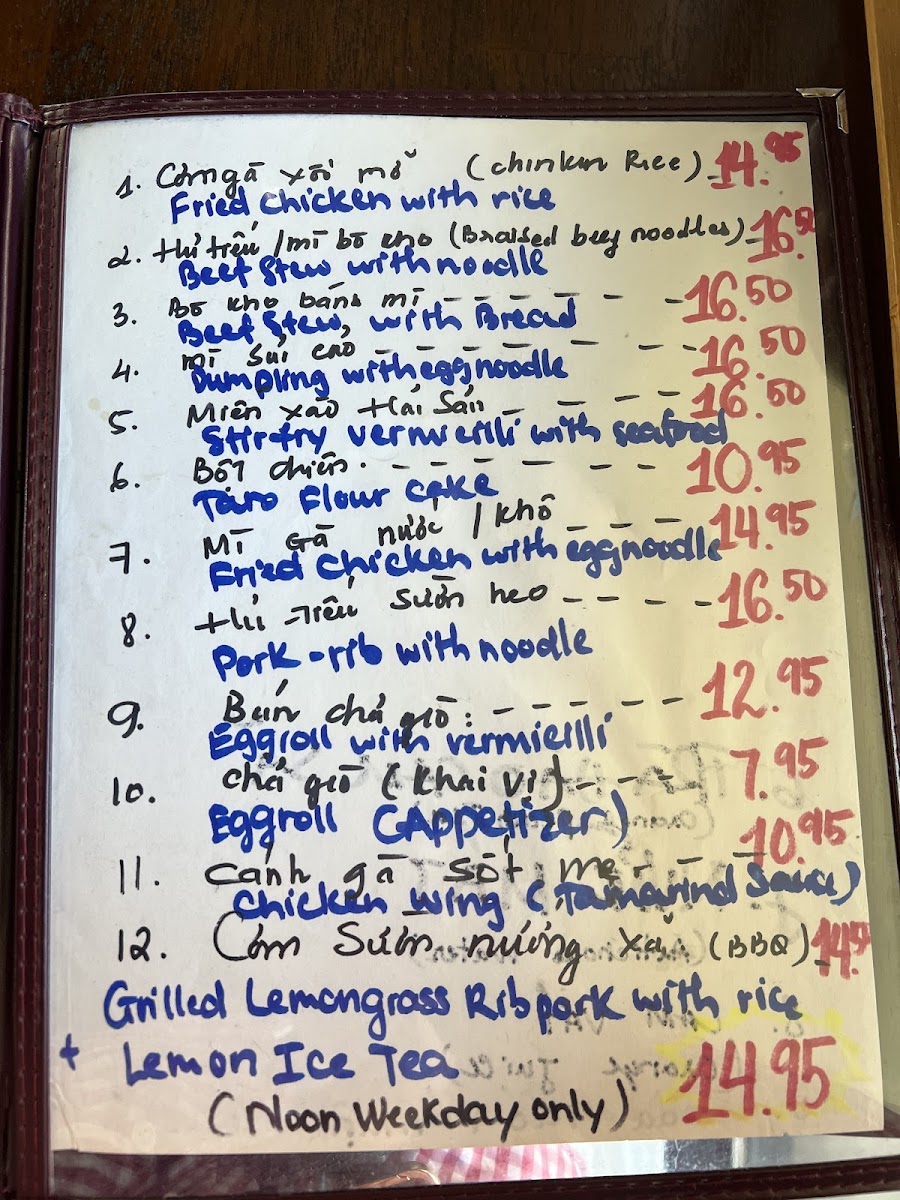 1. Cơm gà xối mỡ (chinken Rice) - 14.95
Fried chicken with rice
2. Hủ tiếu / mì bò kho (Braised beef noodles) - 16.50
Beef Stew with noodle
3. Bò kho bánh mì - - - - - - - 16.50
Beef Stew, with Bread
4. mì sủi cảo - - - - - - - - 16.50
Dumpling with eggnoodle
5. Miến xào Hải Sản - - - - - 16.50
Stir-fry vermicilli with seafood
6. Bột chiên. - - - - - - - - 10.95
Taro Flour cake
7. Mì Gà nước / khô - - - - 14.95
Fried chicken with eggnoodle
8. Hủ - tiếu sườn heo - - - - 16.50
Pork - rib with noodle
9. Bún chả giò: - - - - - - 12.95
Eggroll with vermicilli
10. chả giò (khai vị) - - - 7.95
Eggroll (Appetizer)
11. cánh gà sốt me - - - 10.95
chicken wing (Tamarind Sauce)
12. Cơm Sườn nướng xả (BBQ) -
Grilled Lemongrass Rib pork with rice
+ Lemon Ice Tea 14.95
(Noon Weekday only)